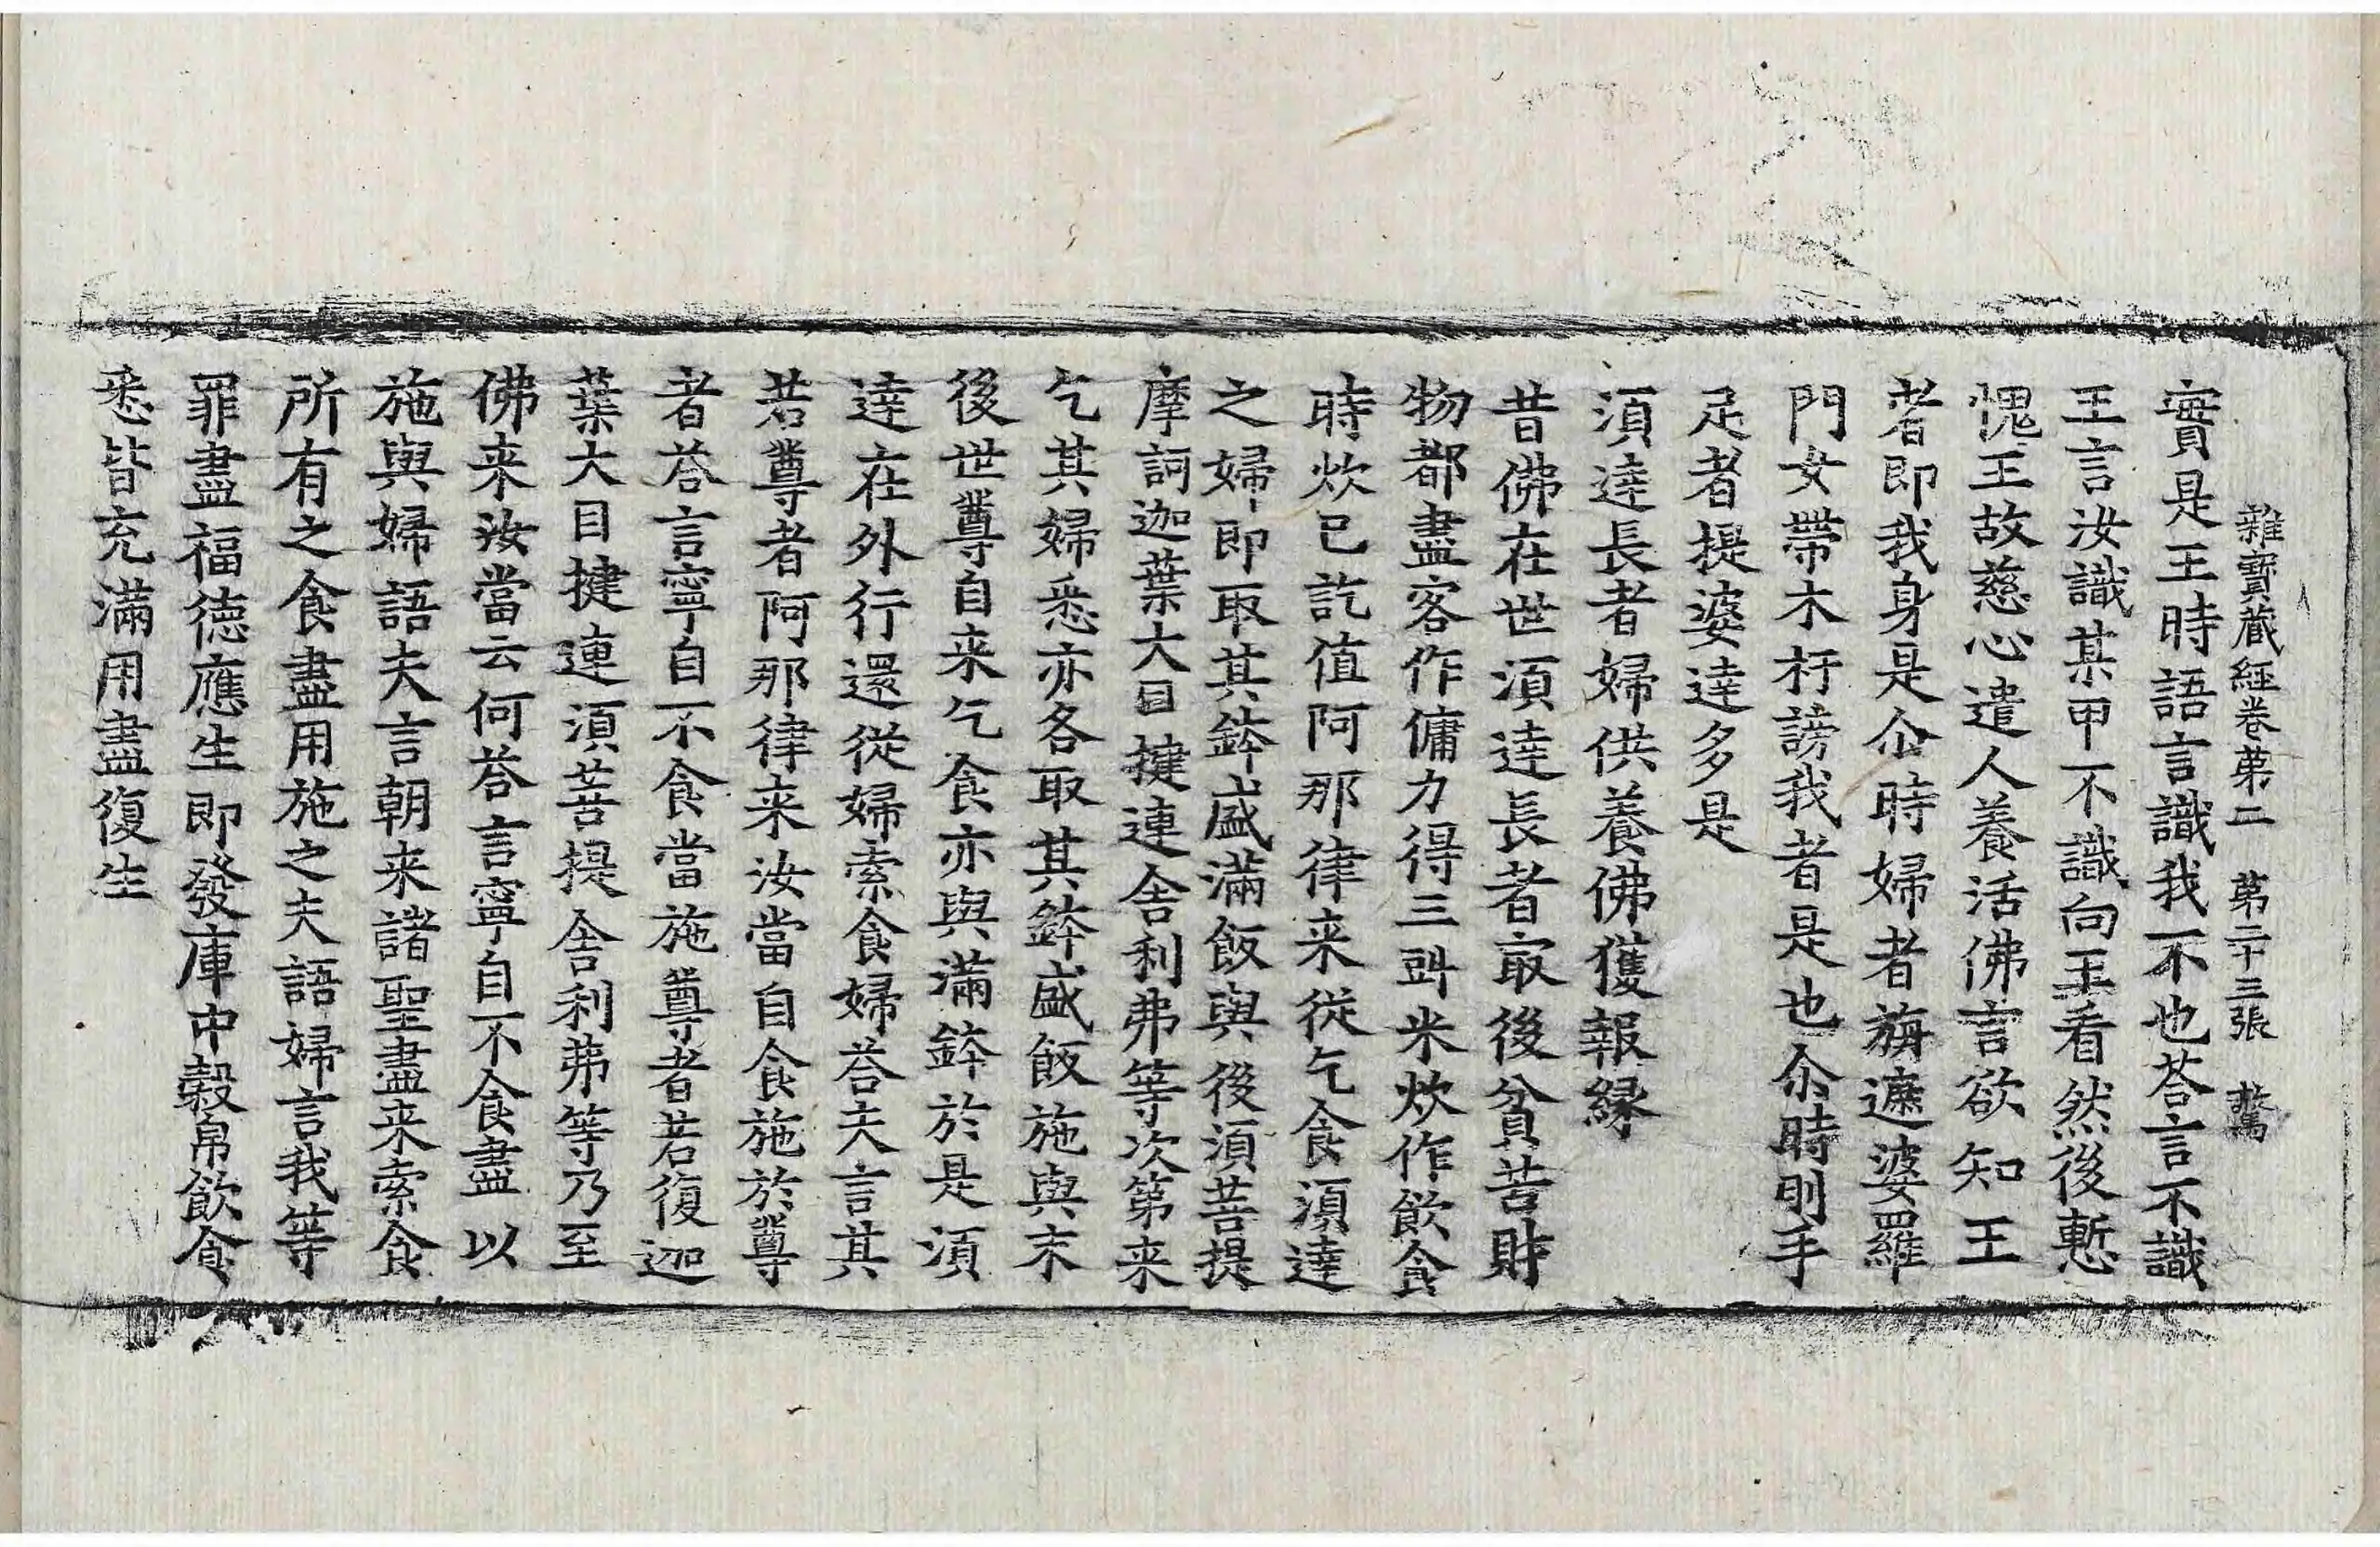 雜寶藏經卷第二　第二十三張　驚
實是王時語言識我不也荅言不識
王言汝識某甲不識向王看然後慙
愧王故慈心遣人養活佛言欲知王
者即我身是尒時婦者旃遮婆羅
門女帶木杅謗我者是也尒時刖手
足者提婆達多是
湏達長者婦供養佛獲報緣
昔佛在世湏達長者㝡後貧苦財
物都盡客作傭力得三㪷米炊作飲食
時炊已訖值阿那律来從乞食湏達
之婦即取其鉢盛滿飯與後湏菩提
摩訶迦葉大目揵連舍利弗等次第来
乞其婦悉亦各取其鉢盛飯施與末
後世尊自来乞食亦與滿鉢於是湏
達在外行還從婦索食婦荅夫言其
若尊者阿那律来汝當自食施於尊
者荅言寧自不食當施尊者若復迦
葉大目揵連湏菩提舍利弗等乃至
佛来汝當云何荅言寧自不食盡以
施與婦語夫言朝来諸聖盡来索食
所有之食盡用施之夫語婦言我等
罪盡福德應生即發庫中穀帛飲食
悉皆充滿用盡復生